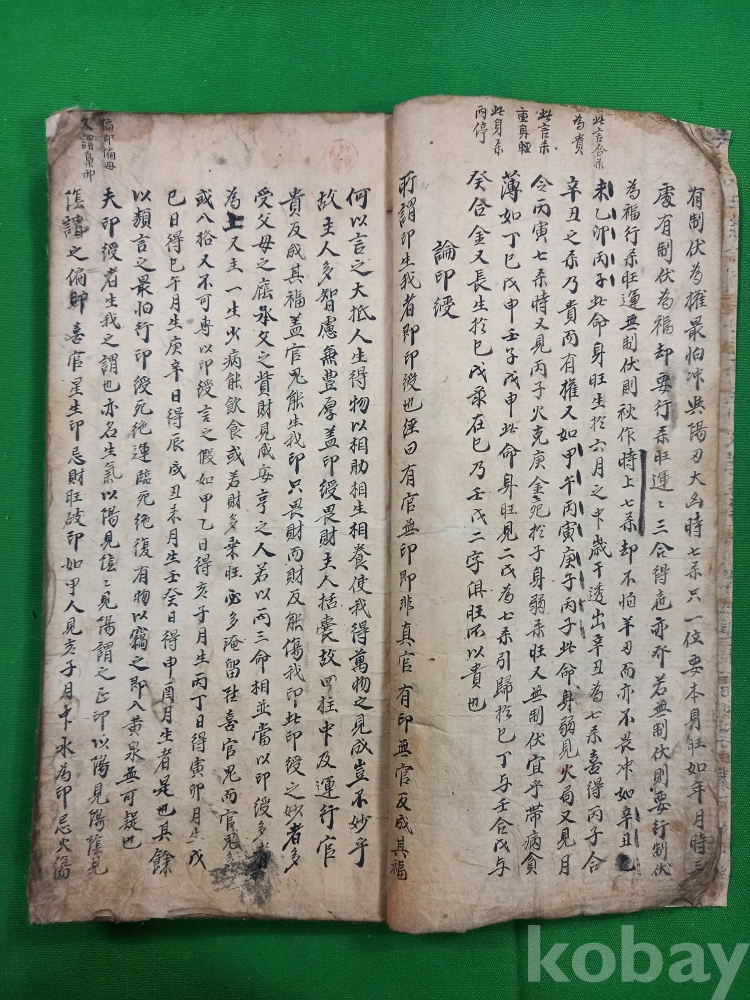 此言合杀
為貴
此言杀
重身輕
此身杀
両停
有制伏為權最怕冲与陽刃大凶時七杀只一位要本身旺如年月時三
處有制伏為福却要行杀旺運〻三合得也亦可若無制伏則要行制伏
為福行杀旺運無制伏則禍作時上七杀却不怕羊刃而亦不畏冲如辛丑乙
未乙卯丙子此命身旺生於六月之中歲干透出辛丑為七杀喜得丙子合
辛丑之杀乃貴而有權又如甲午丙寅庚子丙子此命身弱見火局又見月
令丙寅七杀時又見丙子火克庚金死於子身弱杀旺又無制伏宜乎帶病貧
薄如丁巳戊申壬子戊申此命身旺見二戊為七杀引歸於巳丁与壬合戊与
癸合金又長生於巳戊彔在巳乃壬戊二字俱旺所以貴也
論印綬
所謂印生我者即印綬也経曰有官無印即非真官有印無官反成其福
偏印偏母
又謂梟神
何以言之大抵人生得物以相助相生相養使我得萬物之見成豈不妙乎
故主人多智慮兼豊厚盖印綬畏財主人括囊故四柱中及運行官
貴反成其福盖官鬼能生我印只畏財而財反能傷我印此印綬之妙者多
受父母之廕承父之貲財見成安亨之人若以両三命相並當以印綬多者
為上又主一生少病能飲食或若財多乗旺必多淹留在喜官鬼而官鬼多
或入格又不可専以印綬言之假如甲乙日得亥子月生丙丁日得寅卯月生戊
己日得巳午月生庚辛日得辰戌丑未月生壬癸日得申酉月生者是也其餘
以類言之最怕行印綬死絶運臨死絶復有物以竊之即入黄泉無可疑也
夫印綬者生我之謂也亦名生氣以陽見陰〻見陽謂之正印以陽見陽陰見
陰謂之偏印喜官星生印忌財旺破印如甲人見亥子月中水為印忌火傷
kobay